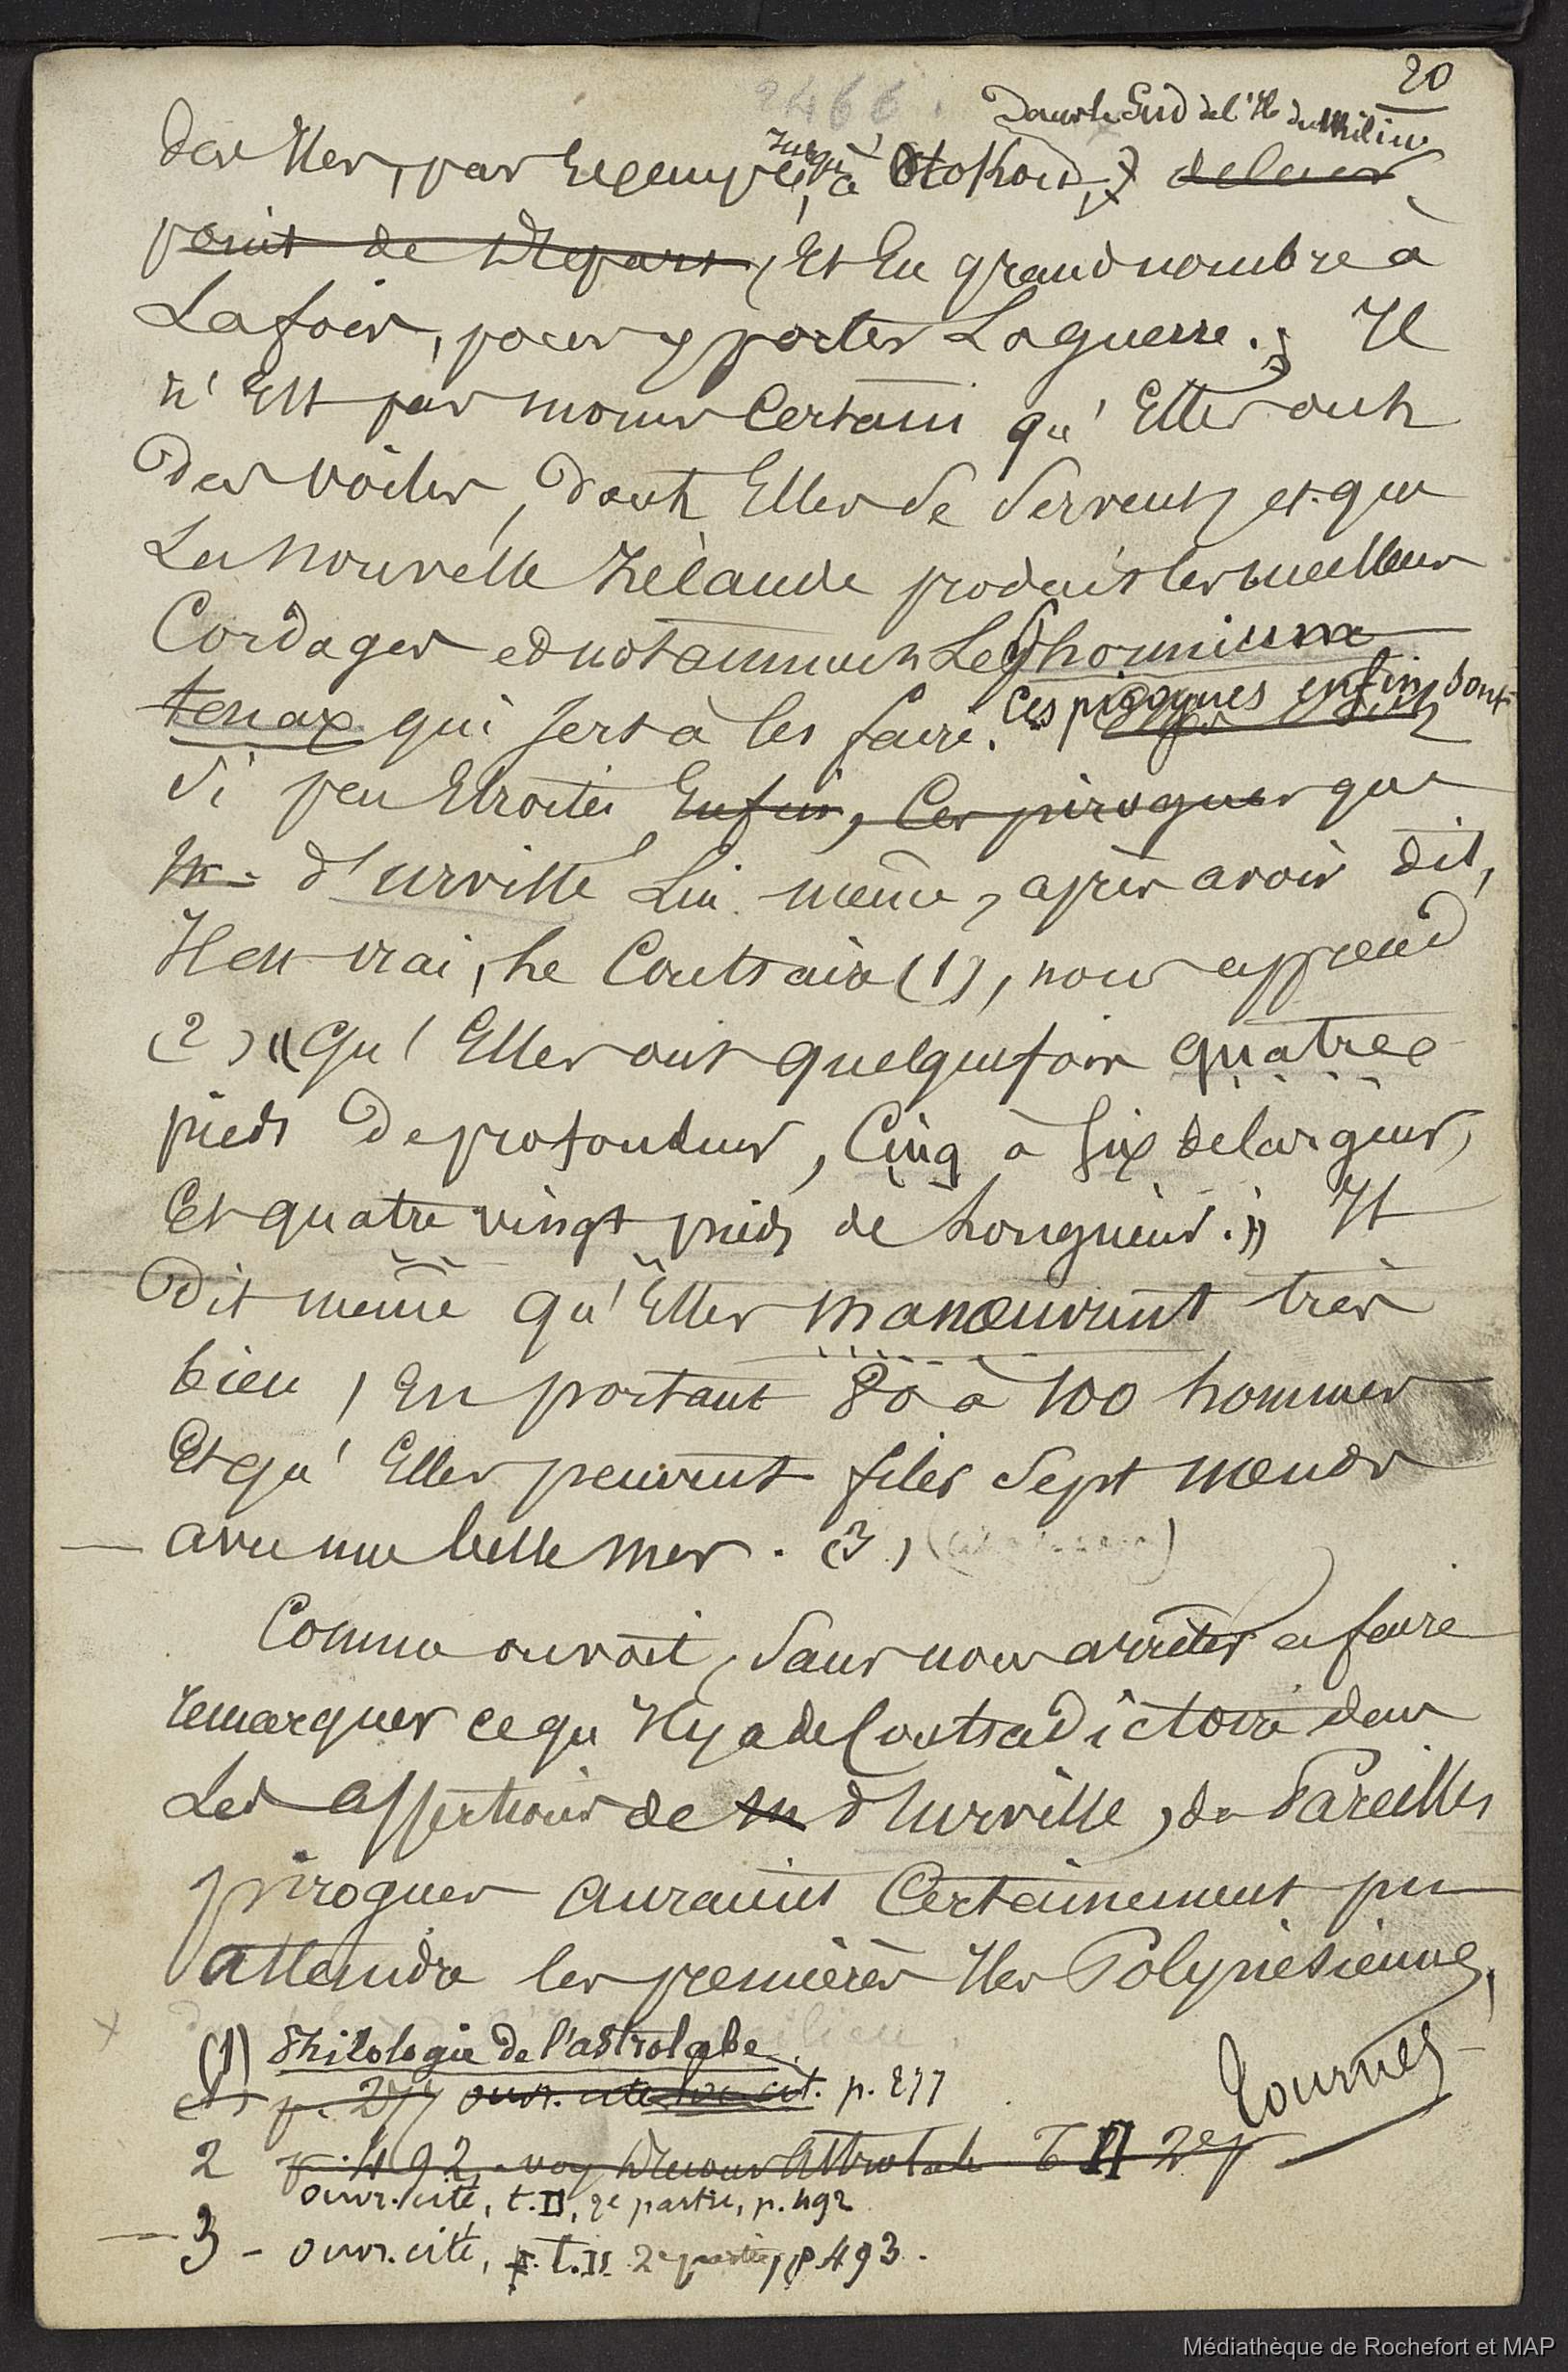 20
2466.
dans le Sud de l'Ile du Milieu
des Iles, par exemple, jusqu'à Otokou, de leur
point de départ, et en grand nombre à
la fois, pour y porter la guerre. Il
n'est pas moins certain qu'elles ont
des voiles, dont elles se servent et que
la Nouvelle Zélande produit les meilleurs
cordages et notamment le Phormium
tenax qui sert à les faire. Ces pirogues enfin sont
si peu étroites Enfin, ces pirogues que
M. d'Urville lui même, après avoir dit,
il est vrai, le contraire (1), nous apprend
(2) « qu'elles ont quelquefois quatre
pieds de profondeur, cinq à six de largeur,
et quatre vingt pieds de longueur. » Il
dit même qu'elles manœuvrent très
bien, en portant 80 à 100 hommes
et qu'elles peuvent filer sept nœuds
avec une belle mer. (3)
Comme on voit, sans nous arrêter à faire
remarquer ce qu'il y a de contradictoire dans
les assertions de M d'Urville, de pareilles
pirogues auraient certainement pu
atteindre les premières Iles Polynésiennes,
(1) Philologie de l'astrolabe.
p. 277 ouvr. cité loc. cit. p. 277
Tournez
2 p. 492, voy. Astrolabe T II 2e p
ouvr. cité, t. II, 2e partie, p. 492
3 - ouvr. cité, t. II 2e partie, p 493.
Médiathèque de Rochefort et MAP